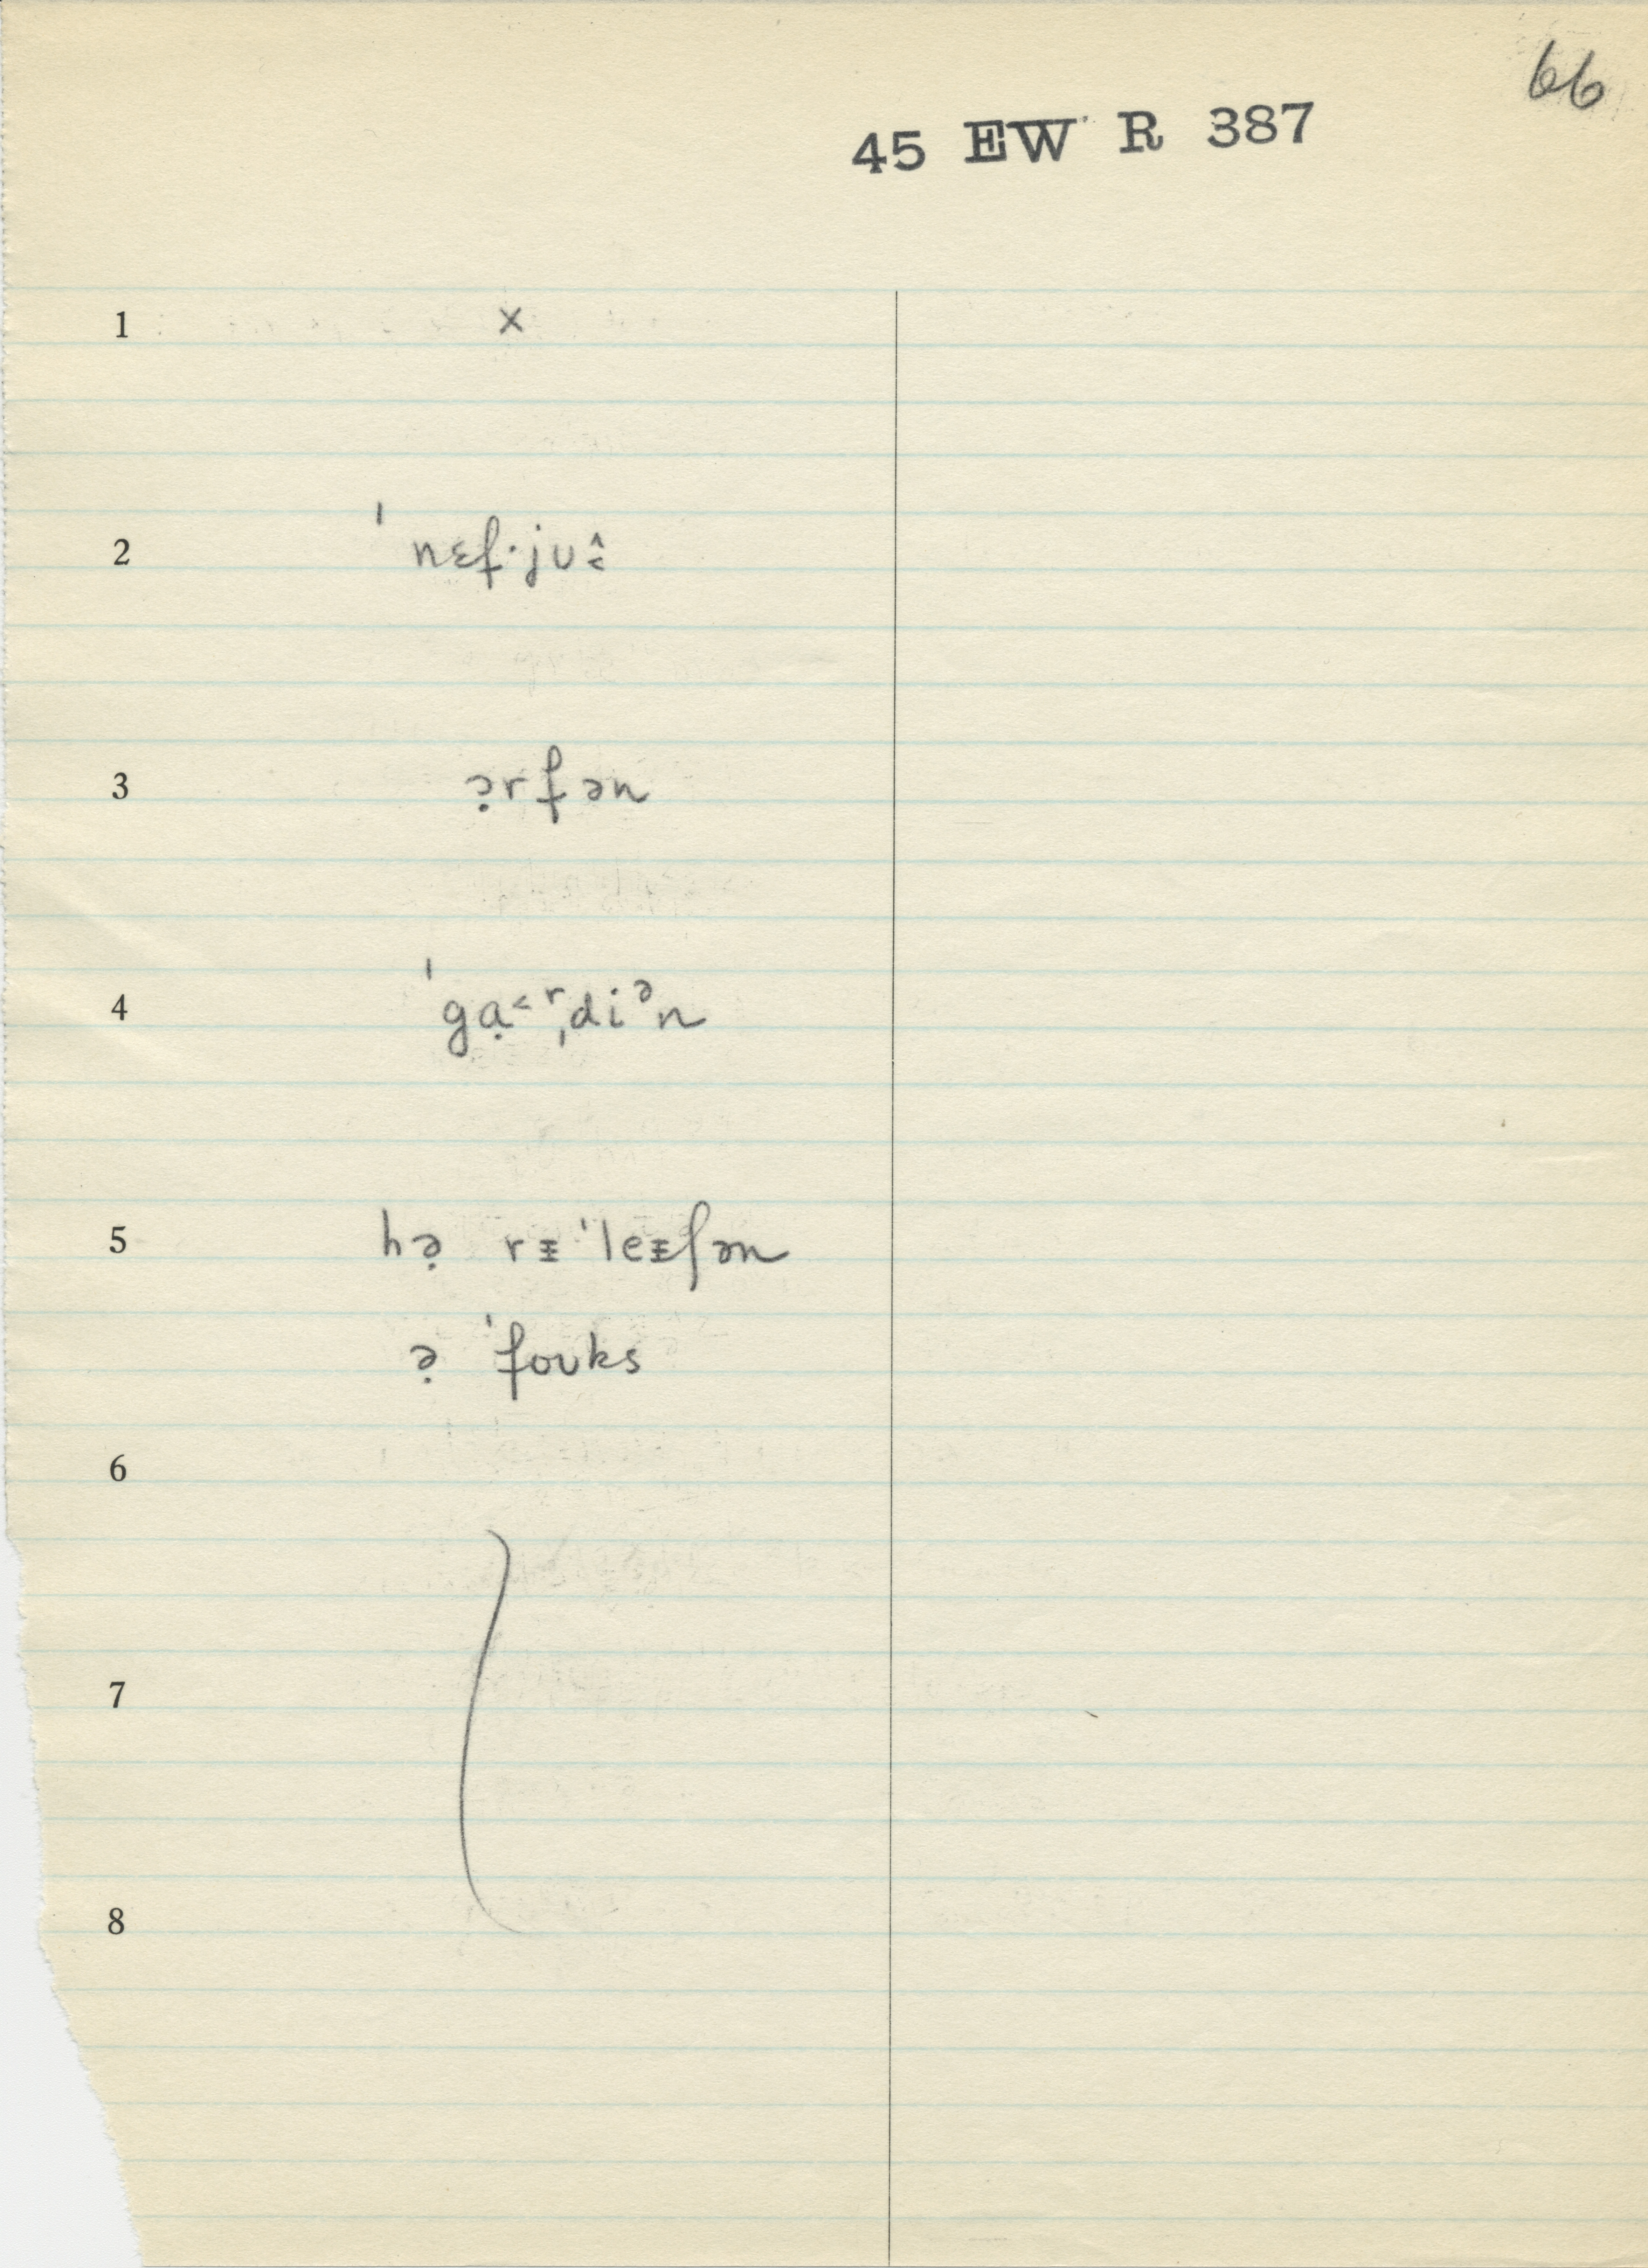 66
45 EW R 387
1 ×
2 ˈnɛf·jʊ˄˂
3 ə̣rfən
4 ˈgɑ̣˂ʳˌdiᵊn
5 hə̣ rᵻˈleᵻʃən
ə̣ ˈfoʊks
6
7
8